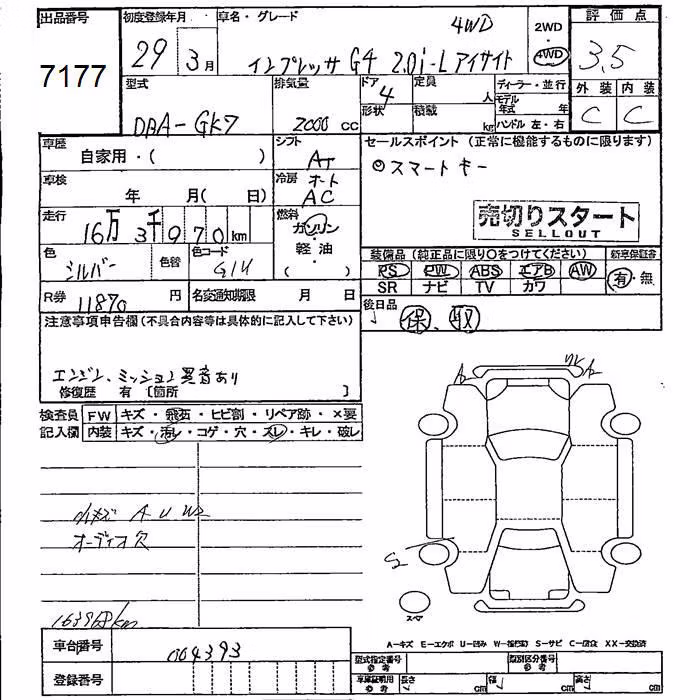 出品番号 初度登録年月 車名・グレード 4WD 2WD・4WD 評価点
7177 29 3月 インプレッサ G4 2.0i-L アイサイト 3.5
型式 排気量 ドア 4 定員 人 ディーラー・並行 外装 内装
形状 積載 kg モデル年式 年 C C
DBA-GK7 2000 cc ハンドル 左・右
車歴 シフト セールスポイント (正常に機能するものに限ります)
自家用・( ) AT ◎スマートキー
車検 冷房 オート
年 月( 日) AC
走行 燃料 売切りスタート
16万 3千 970 km ガソリン SELLOUT
色 色替 色コード 軽油 装備品 (純正品に限り○をつけてください) 新車保証書
シルバー G1U ( ・ ) PS PW ABS エアB AW 有・無
SR ナビ TV カワ
R券 11870 円 名変通知期限 月 日 後日品
保、取
注意事項申告欄 (不具合内容等は具体的に記入して下さい)
エンジン、ミッション異音あり
修復歴 有 〔箇所 〕
検査員 FW キズ・飛石・ヒビ割・リペア跡・×要
記入欄 内装 キズ・汚レ・コゲ・穴・スレ・キレ・破レ
A U W2
オーディオ欠
S2
スペア
km
A-キズ E-エクボ U-凹み S-サビ C-腐食 XX-交換済
車台番号 004393 型式指定番号 参考 類別区分番号 参考
登録番号 車庫証明用 参考 長さ cm 幅 cm 高さ cm